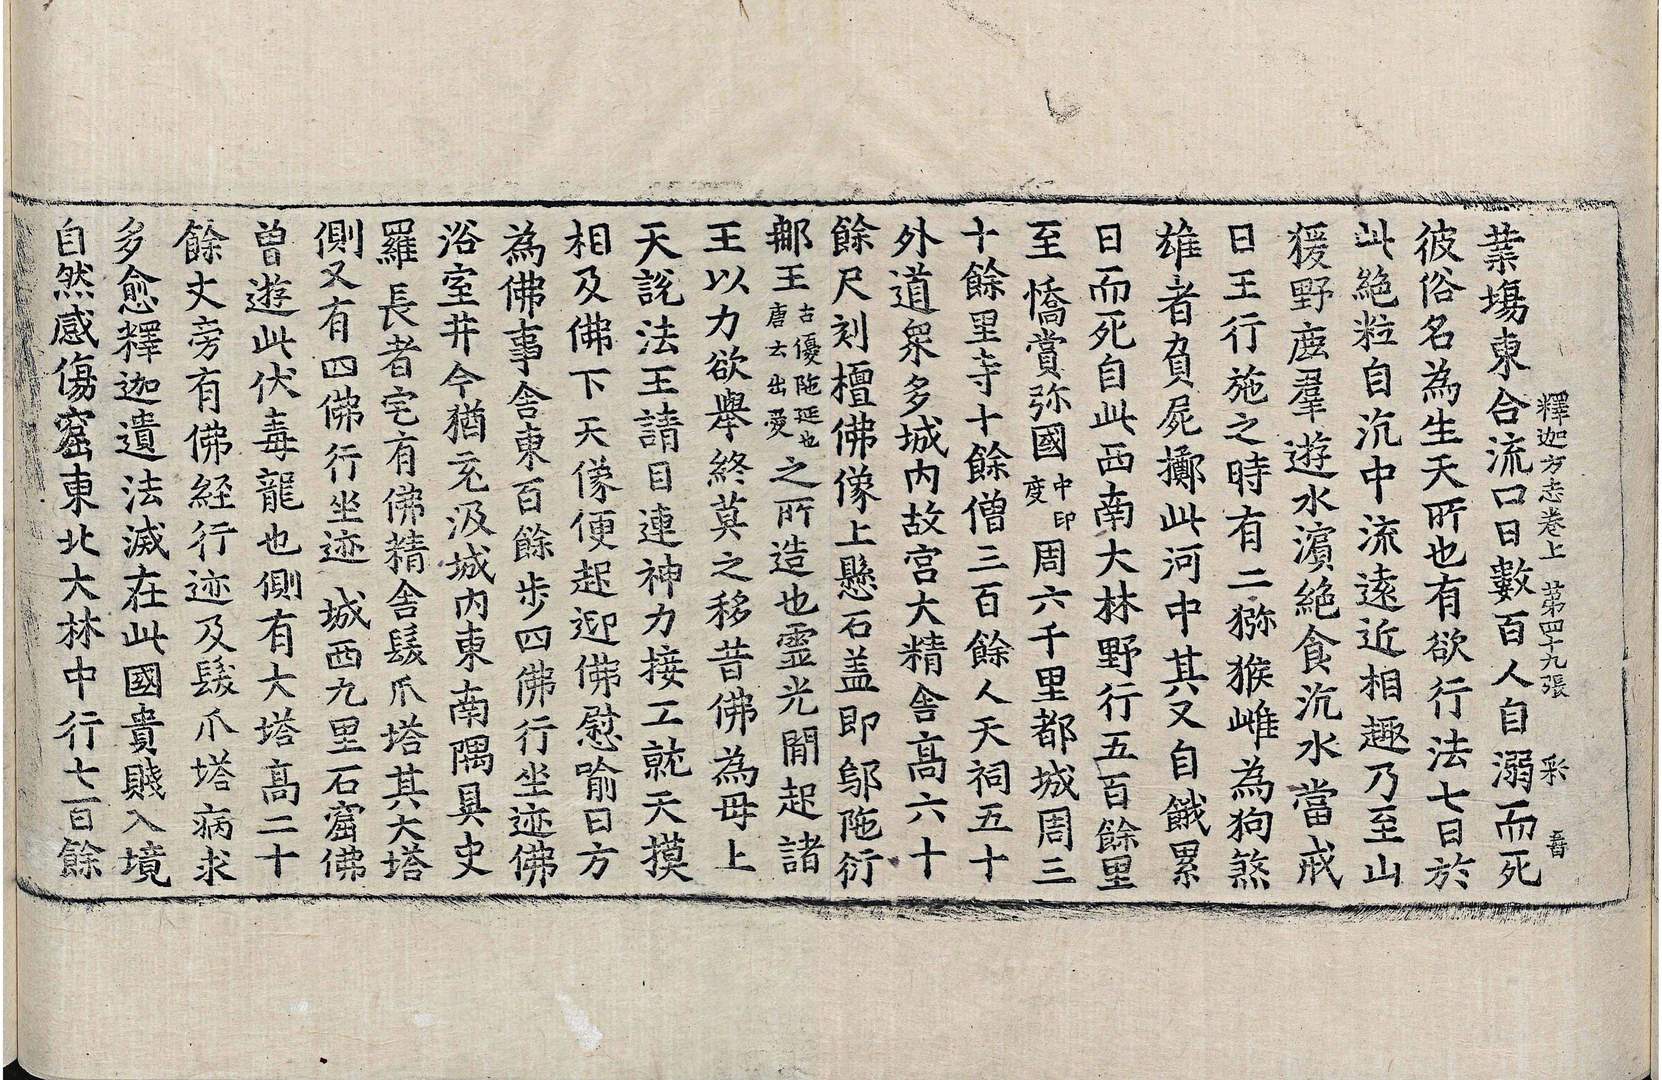 釋迦方志卷上 第四十九張 彩
業塲東合流口日數百人自溺而死
彼俗名為生天所也有欲行法七日於
此絶粒自沉中流遠近相趣乃至山
猨野鹿羣遊水濵絶食沉水當戒
日王行施之時有二獼猴雌為狗煞
雄者負屍擲此河中其又自餓累
日而死自此西南大林野行五百餘里
至憍賞弥國中印度周六千里都城周三
十餘里寺十餘僧三百餘人天祠五十
外道衆多城内故宫大精舎髙六十
餘尺刻檀佛像上懸石盖即鄔陁衍
那王古優陁延也唐云出愛之所造也靈光間起諸
王以力欲舉終莫之移昔佛為母上
天說法王請目連神力接工就天摸
相及佛下天像便起迎佛慰喻曰方
為佛事舎東百餘步四佛行坐迹佛
浴室井今猶充汲城内東南隅具史
羅長者宅有佛精舎髮爪塔其大塔
側又有四佛行坐迹城西九里石窟佛
曾遊此伏毒龍也側有大塔髙二十
餘丈旁有佛経行迹及髮爪塔病求
多愈釋迦遺法滅在此國貴賤入境
自然感傷窟東北大林中行七百餘